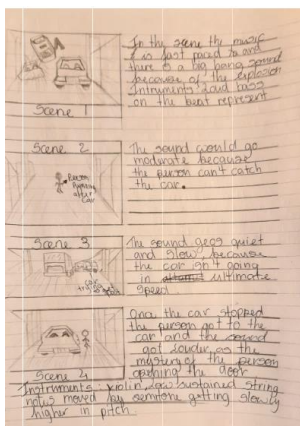 In the scene the music
is fast paced to and
there is a big bang sound
because of the explosion
Intruments Loud bass
on the beat represent
Scene 1
Scene 2
The sound would go
moderate because
the person can't catch
the car.
Person
Running
after
Car
Scene 3
The sound geos quiet
and slow, because
the car isn't going
in ultimate
speed.
Once the car stopped
the person got to the
car and the sound
got louder as the
mystery of the person
opening the door
Scene 4
Instruments: violin, low sustained string
notes moved by semitone getting slowly
higher in pitch.